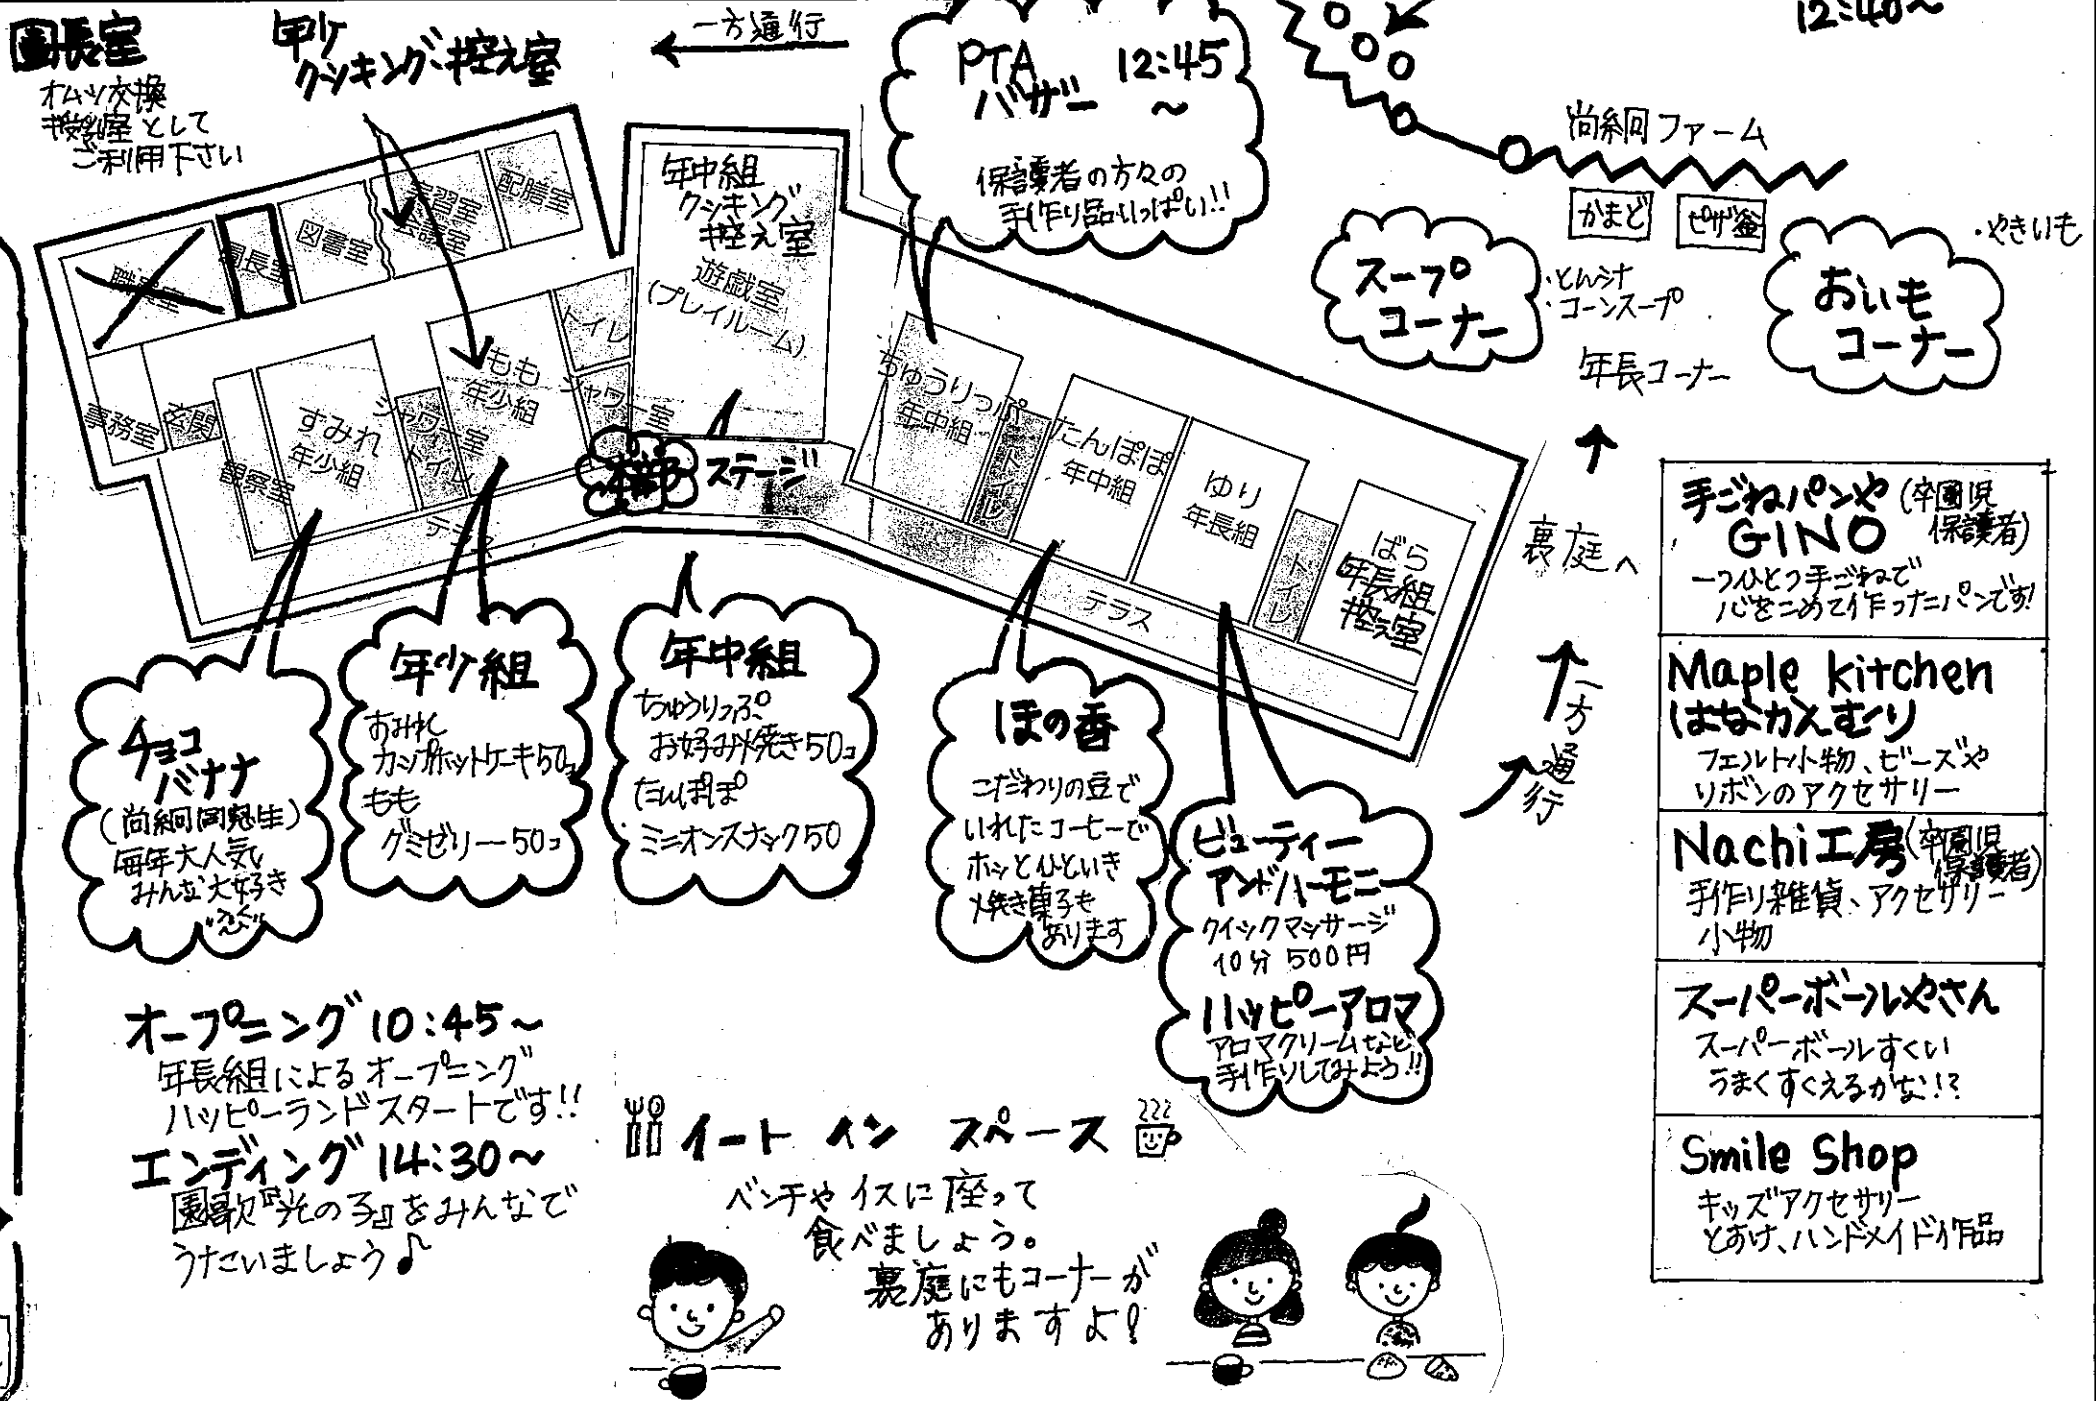 園長室
オムツ交換
授乳室として
ご利用下さい
年少
クッキング控え室
一方通行
PTA
バザー
12:45
～
保護者の方々の
手作り品いっぱい!!
12:40～
尚絅ファーム
かまど
ピザ釜
スープ
コーナー
・とん汁
・コーンスープ
おいも
コーナー
・やきいも
年長コーナー
職員室
園長室
図書室
配膳室
年中組
クッキング
控え室
遊戯室
(プレイルーム)
事務室
玄関
観察室
すみれ
年少組
シャワー室
トイレ
もも
年少組
トイレ
シャワー室
テラス
本部
ステージ
ちゅうりっぷ
年中組
トイレ
たんぽぽ
年中組
ゆり
年長組
トイレ
ばら
年長組
控え室
テラス
裏庭へ
一方通行
チョコ
バナナ
(尚絅同窓生)
毎年大人気
みんな大好き
年少組
すみれ
カップホットケーキ50コ
もも
グミゼリー50コ
年中組
ちゅうりっぷ
お好み焼き50コ
たんぽぽ
ミニオンスナック50
ほの香
こだわりの豆で
いれたコーヒーで
ホッとひといき
焼き菓子も
あります
ビューティー
アンドハーモニー
クイックマッサージ
10分 500円
ハッピーアロマ
アロマクリームなど
手作りしてみよう!!
手ごねパンや
GINO
(卒園児
保護者)
一つひとつ手ごねで
心をこめて作ったパンです!
Maple kitchen
はなかえむり
フェルト小物、ビーズや
リボンのアクセサリー
Nachi工房
(卒園児
保護者)
手作り雑貨、アクセサリー
小物
スーパーボールやさん
スーパーボールすくい
うまくすくえるかな!?
Smile Shop
キッズアクセサリー
とあけ、ハンドメイド作品
オープニング 10:45～
年長組によるオープニング
ハッピーランドスタートです!!
エンディング 14:30～
園歌『光の子』をみんなで
うたいましょう♪
イート イン スペース
ベンチやイスに座って
食べましょう。
裏庭にもコーナーが
ありますよ!